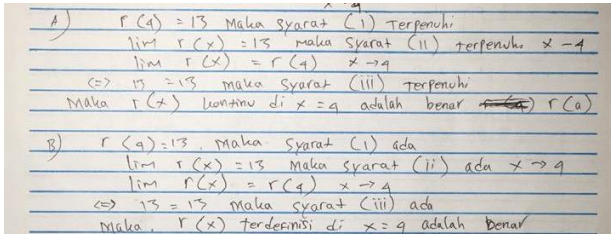 x → 4
A) r (4) = 13 maka syarat (i) terpenuhi
lim r (x) = 13 maka syarat (ii) terpenuhi x → 4
lim r (x) = r (4) x → 4
<=> 13 = 13 maka syarat (iii) terpenuhi
Maka r (x) kontinu di x = 4 adalah benar r (a)
B) r (4) = 13. Maka syarat (i) ada
lim r (x) = 13 Maka syarat (ii) ada x → 4
lim r(x) = r(4) x → 4
<=> 13 = 13 maka syarat (iii) ada
Maka. r (x) terdefinisi di x = 4 adalah benar